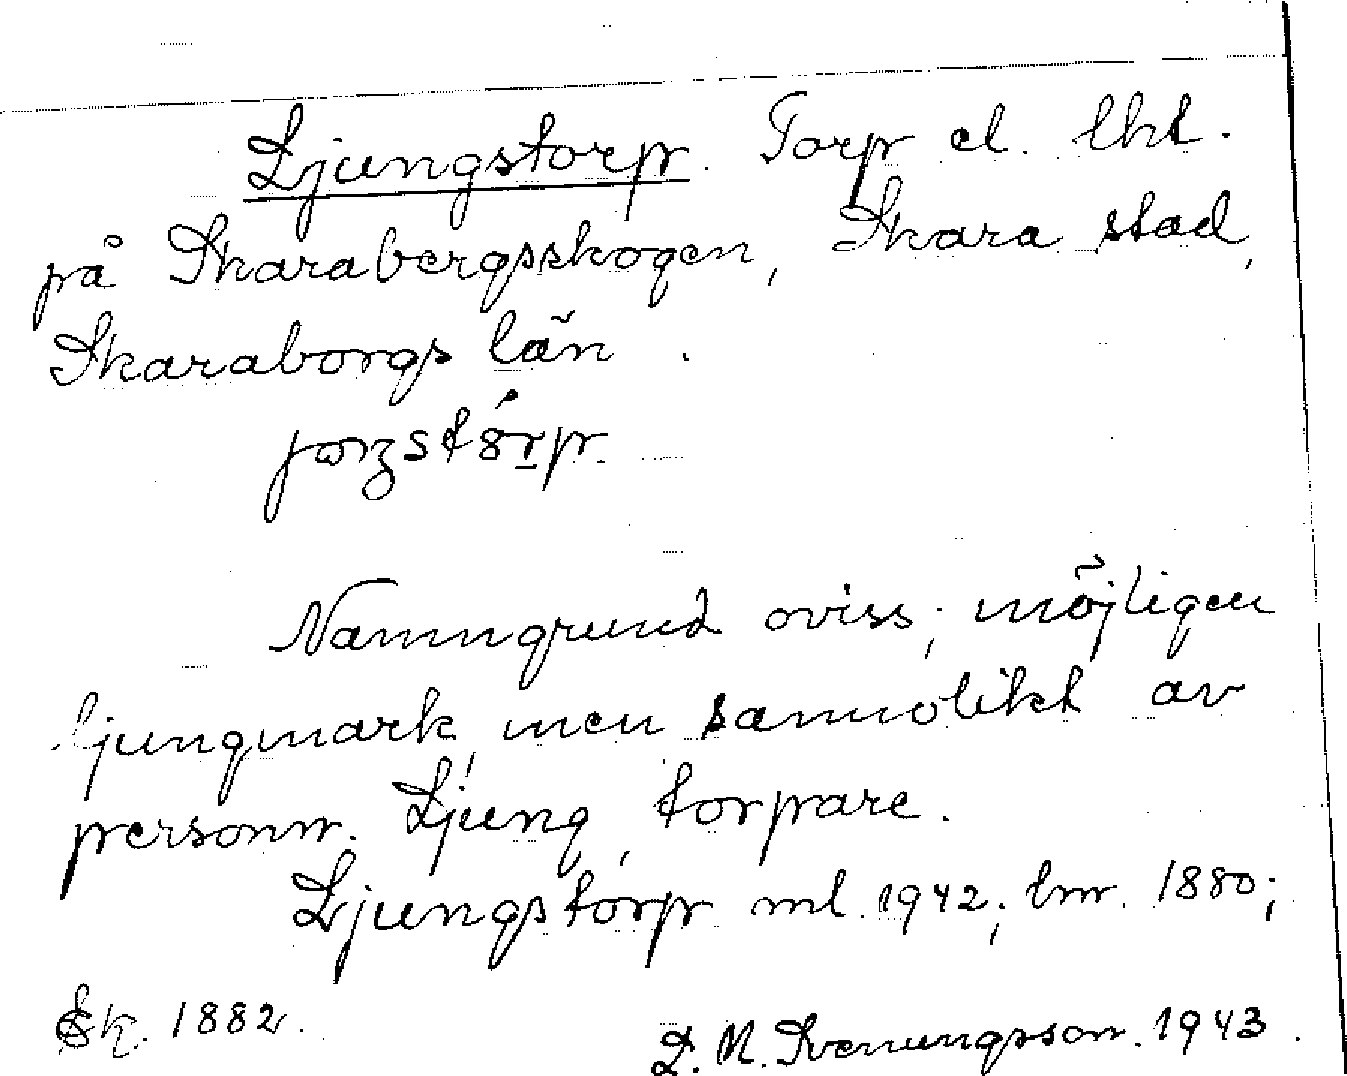 Ljungstorp. Torp el. lht.
på Skarabergsskogen, Skara stad,
Skaraborgs län.
Namngrund oviss; möjligen
ljungmark, men sannolikt av
personn. Ljung, torpare.
Ljungstorp ml. 1942; lm. 1880;
Ek. 1882.
D. N. Svenungsson. 1943.